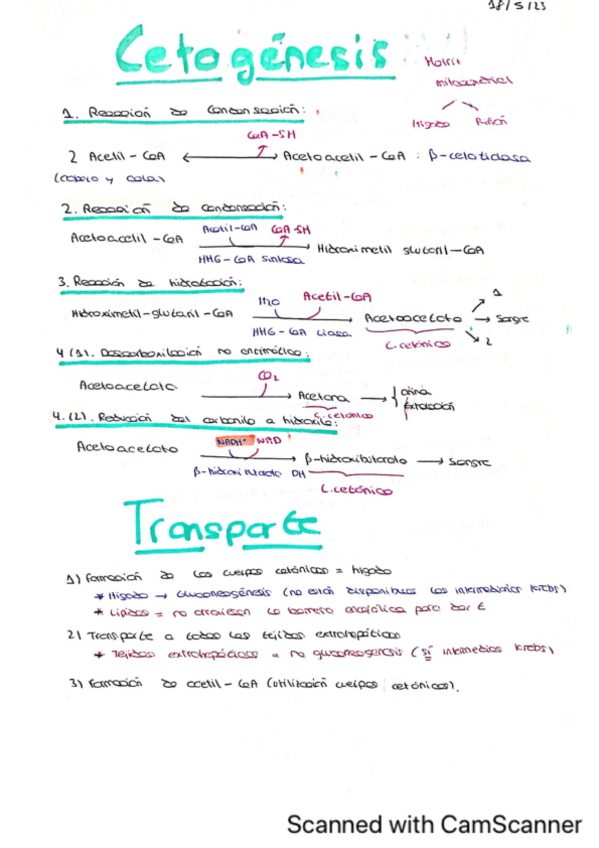 18/5/23
Cetogénesis
Matriz
mitocondrial
Hígado Riñón
1. Reacción de condensación:
CoA-SH
2 Acetil-CoA Acetoacetil-CoA : β-cetotiolasa
(cabeza y cola)
2. Reacción de condensación:
Acetil-CoA CoA-SH
Acetoacetil-CoA Hidroximetil glutaril-CoA
HHG-CoA sintasa
3. Reacción de hidratación:
H2O Acetil-CoA 1
Hidroximetil-glutaril-CoA Acetoacetato Sangre
HHG-CoA Liasa C.cetónico 2
4(1). Descarboxilación no enzimática:
CO2
Acetoacetato Acetona orina
C.cetónico
4.(2). Reducción del carbonilo a hidroxilo:
NADH+ NAD
Acetoacetato β-hidroxibutarato Sangre
β-hidroxibutarato DH
C.cetónico
Transporte
1) Formación de los cuerpos cetónicos = hígado
* Hígado → Gluconeogénesis (no están disponibles los intermediarios Krebs)
* Lípidos = no atraviesan la barrera encefálica para dar E
2) Transporte a todos los tejidos extrahepáticos
* Tejidos extrahepáticos = no gluconeogenesis (sí intermedios Krebs)
3) Formación de acetil-CoA (utilización cuerpos cetónicos).
Scanned with CamScanner